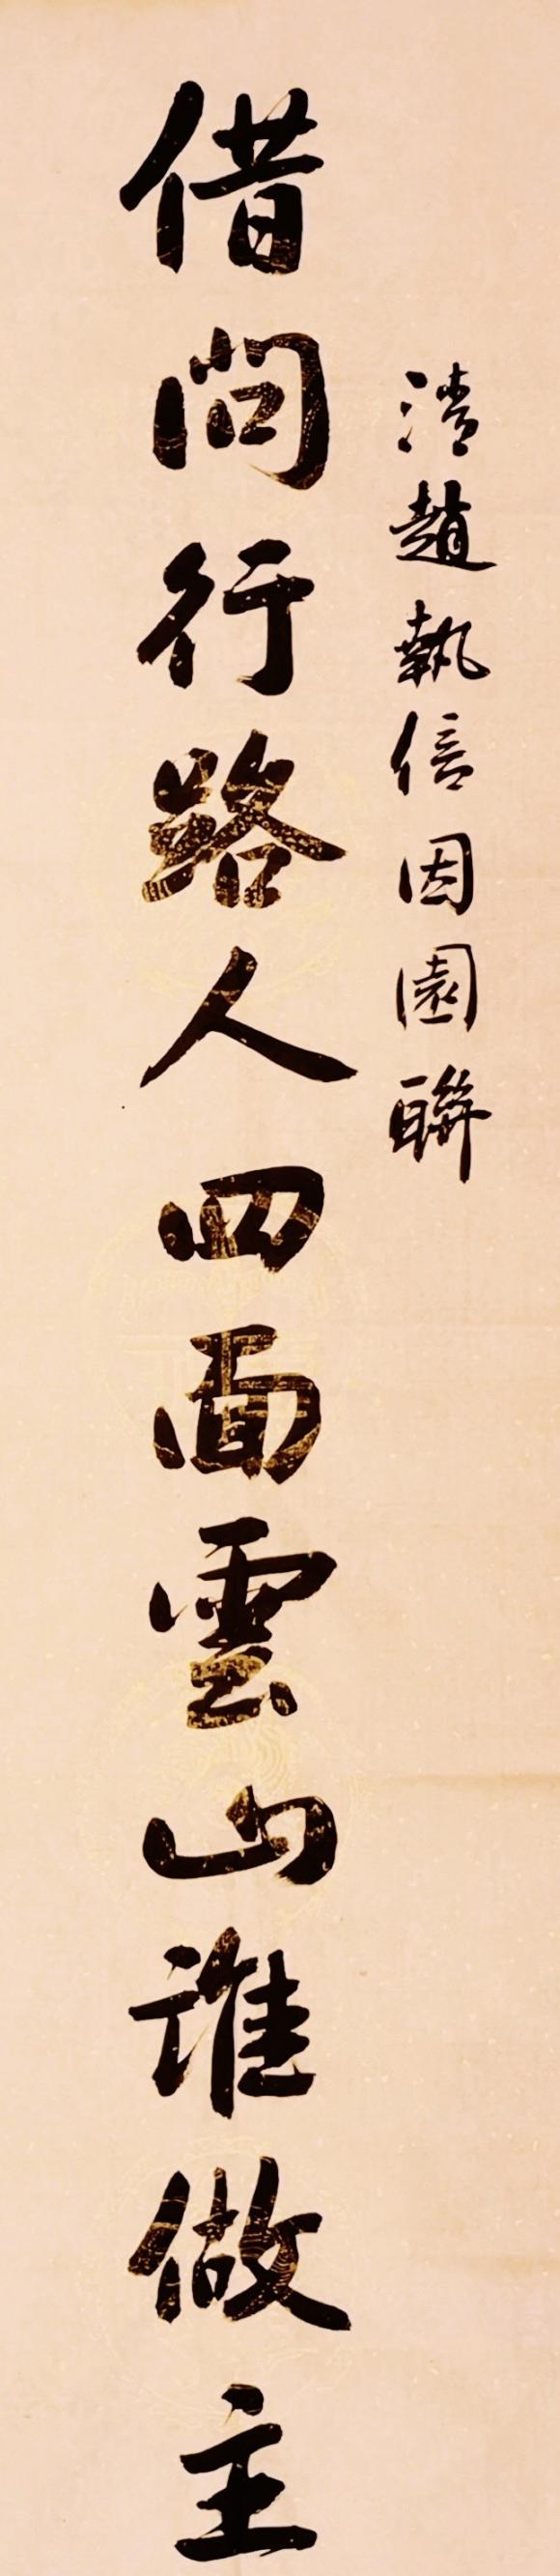 清趙執信因園聯
借問行路人四面雲山誰做主